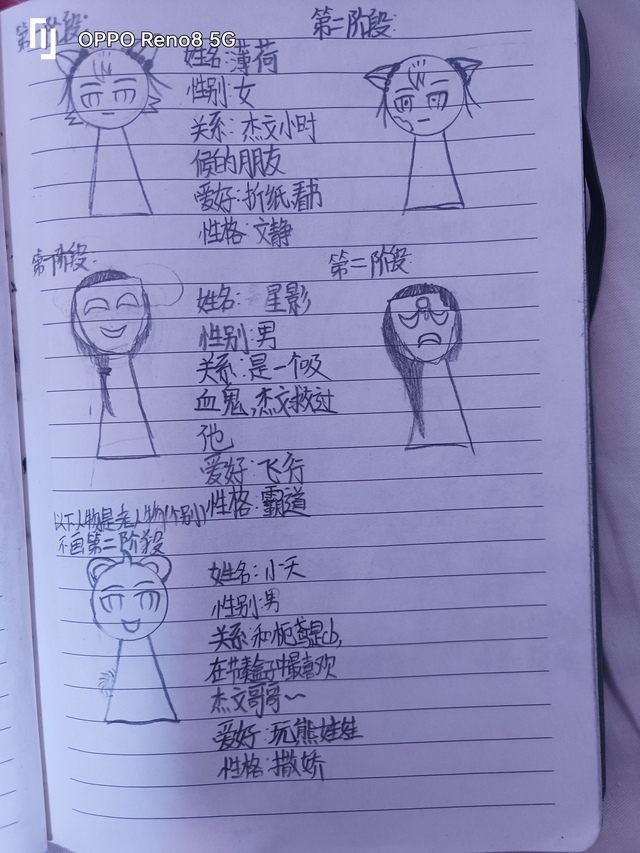 OPPO Reno8 5G
第一阶段:
第二阶段:
姓名:薄荷
性别:女
关系:杰文小时
候的朋友
爱好:折纸,看书
性格:文静
第一阶段:
第二阶段:
姓名:星影
性别:男
关系:是一个吸
血鬼,杰文救过
他
爱好:飞行
性格:霸道
以下人物是老人物(个别)
不画第二阶段
姓名:小天
性别:男
关系:和 是cb,
在节奏盒子中最喜欢
杰文哥哥~
爱好:玩熊娃娃
性格:撒娇